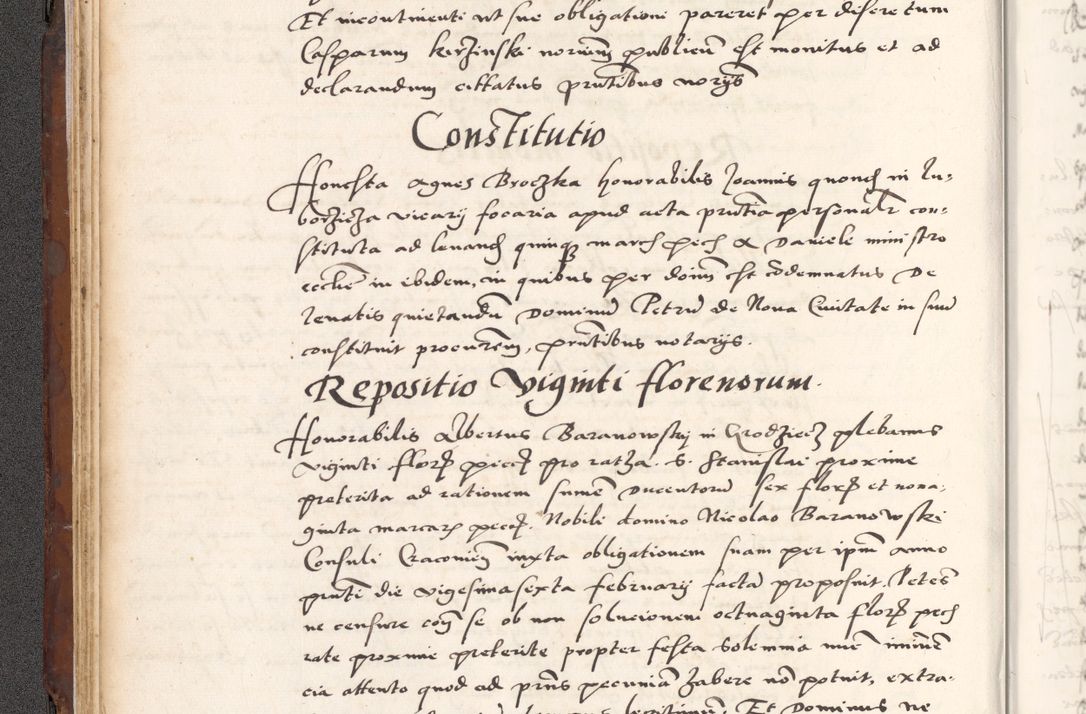 Et incontinenti ut sue obligationi pareret per disere tum
Casparum Kerzinski noriũm publicũ est monitus et ad
declarandum cittatus prñtibus norijs
Constitutio
Honesta Agnes Broczka honorabilis Joannis quond in Lu-
borzicza vicarij focaria apud acta prñtia personalr con-
stituta ad levand quinq march pech a Daniele ministro
ecclie in ibidem, in quibus per doim est codemnatus De
levatis quietandũ Dominũ Petrũ de Nova Civitate in suũ
constituit procurem, prñtibus notarijs.
Repositio viginti florenorum.
Honorabilis Albertus Baranowskij in Grodziecz plebanus
viginti flor pecc pro ratha. S. Stanislai proxime
preterita ad rationem sumẽ Ducentorũ sex flor et nona-
ginta marcar pecc. Nobili domino Nicolao Baranowski
Consuli Cracovieñ iuxta obligationem suam per ipm anno
prñti die vigesimasexta februarij factã proposuit. Petẽs
ne censure coñ se ob non solucionem octuaginta flor pech
rate proxime preterite propter festa solemnia nuñc iminẽ
cia attento quod ad prñs pecuniã habere nõ potuit, extra-
Et Dominus ne